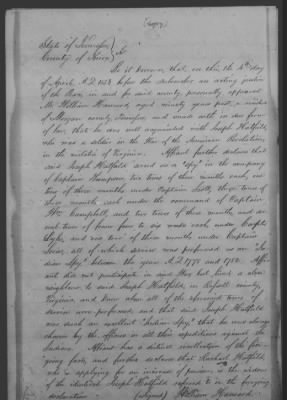 (Copy)
State of Tennessee }
County of Knox } Ss.
Be it known, that on this the 4th day
of April A.D. 1853 before the subscriber an acting justice
of the Peace, in and for said county, personally appeared
Mr William Hansard, aged ninety years past, a resident
of Morgan county, Tennessee, and made oath in due form
of law, that he was well acquainted with Joseph Hatfield,
who was a soldier in the War of the American Revolution,
in the militia of Virginia. Affiant further declares that
said Joseph Hatfield served as a spy in the company
of Captain Thompson, two tours of three months each, one
tour of three months under Captain Scott, three tours of
three months each under the command of Captain
Wm Campbell, and two tours of three months and one
tour of from four to six weeks each, under Captain
and one tour of three months under Captain
all of which service was performed as an "In-
dian Spy," between the years A.D. 1777 and 1782. Affi-
ant did not participate in said War but lived a close
neighbor to said Joseph Hatfield, in Russell county,
Virginia, and knew when all of the aforesaid tours of
service were performed, and that said Joseph Hatfield
was such an excellent "Indian Spy," that he was always
chosen by the officers in all their expeditions against the
Indians. Affiant has a distinct recollection of the fore-
going facts, and further declares that Rachael Hatfield
who is applying for an increase of pension, is the widow
of the identical Joseph Hatfield referred to in the foregoing
declaration. (Signed) William Hansard.